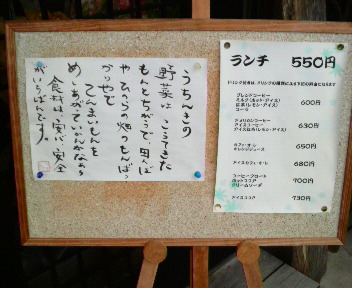 うちんきの
野菜は こうてきた
もんとちがうで、田んぼ
や ひらの畑で もんばっ
かりやで
てんまいもんを
めしあがっていんかなあら
食材は 安心、安全
がいちばんです。
ランチ 550円
ドリンク付きは、ドリンクの種類により下記の料金となります
ブレンドコーヒー
ミルク(ホット・アイス)
紅茶(レモン・アイス) 600円
コーラ
アメリカンコーヒー
アイスコーヒー 630円
アイス紅茶(レモン・アイス)
カフェ・オ・レ 650円
オレンジジュース
アイスカフェ・オ・レ 680円
コーヒーフロート
ホットココア 700円
クリームソーダ
アイスココア 730円